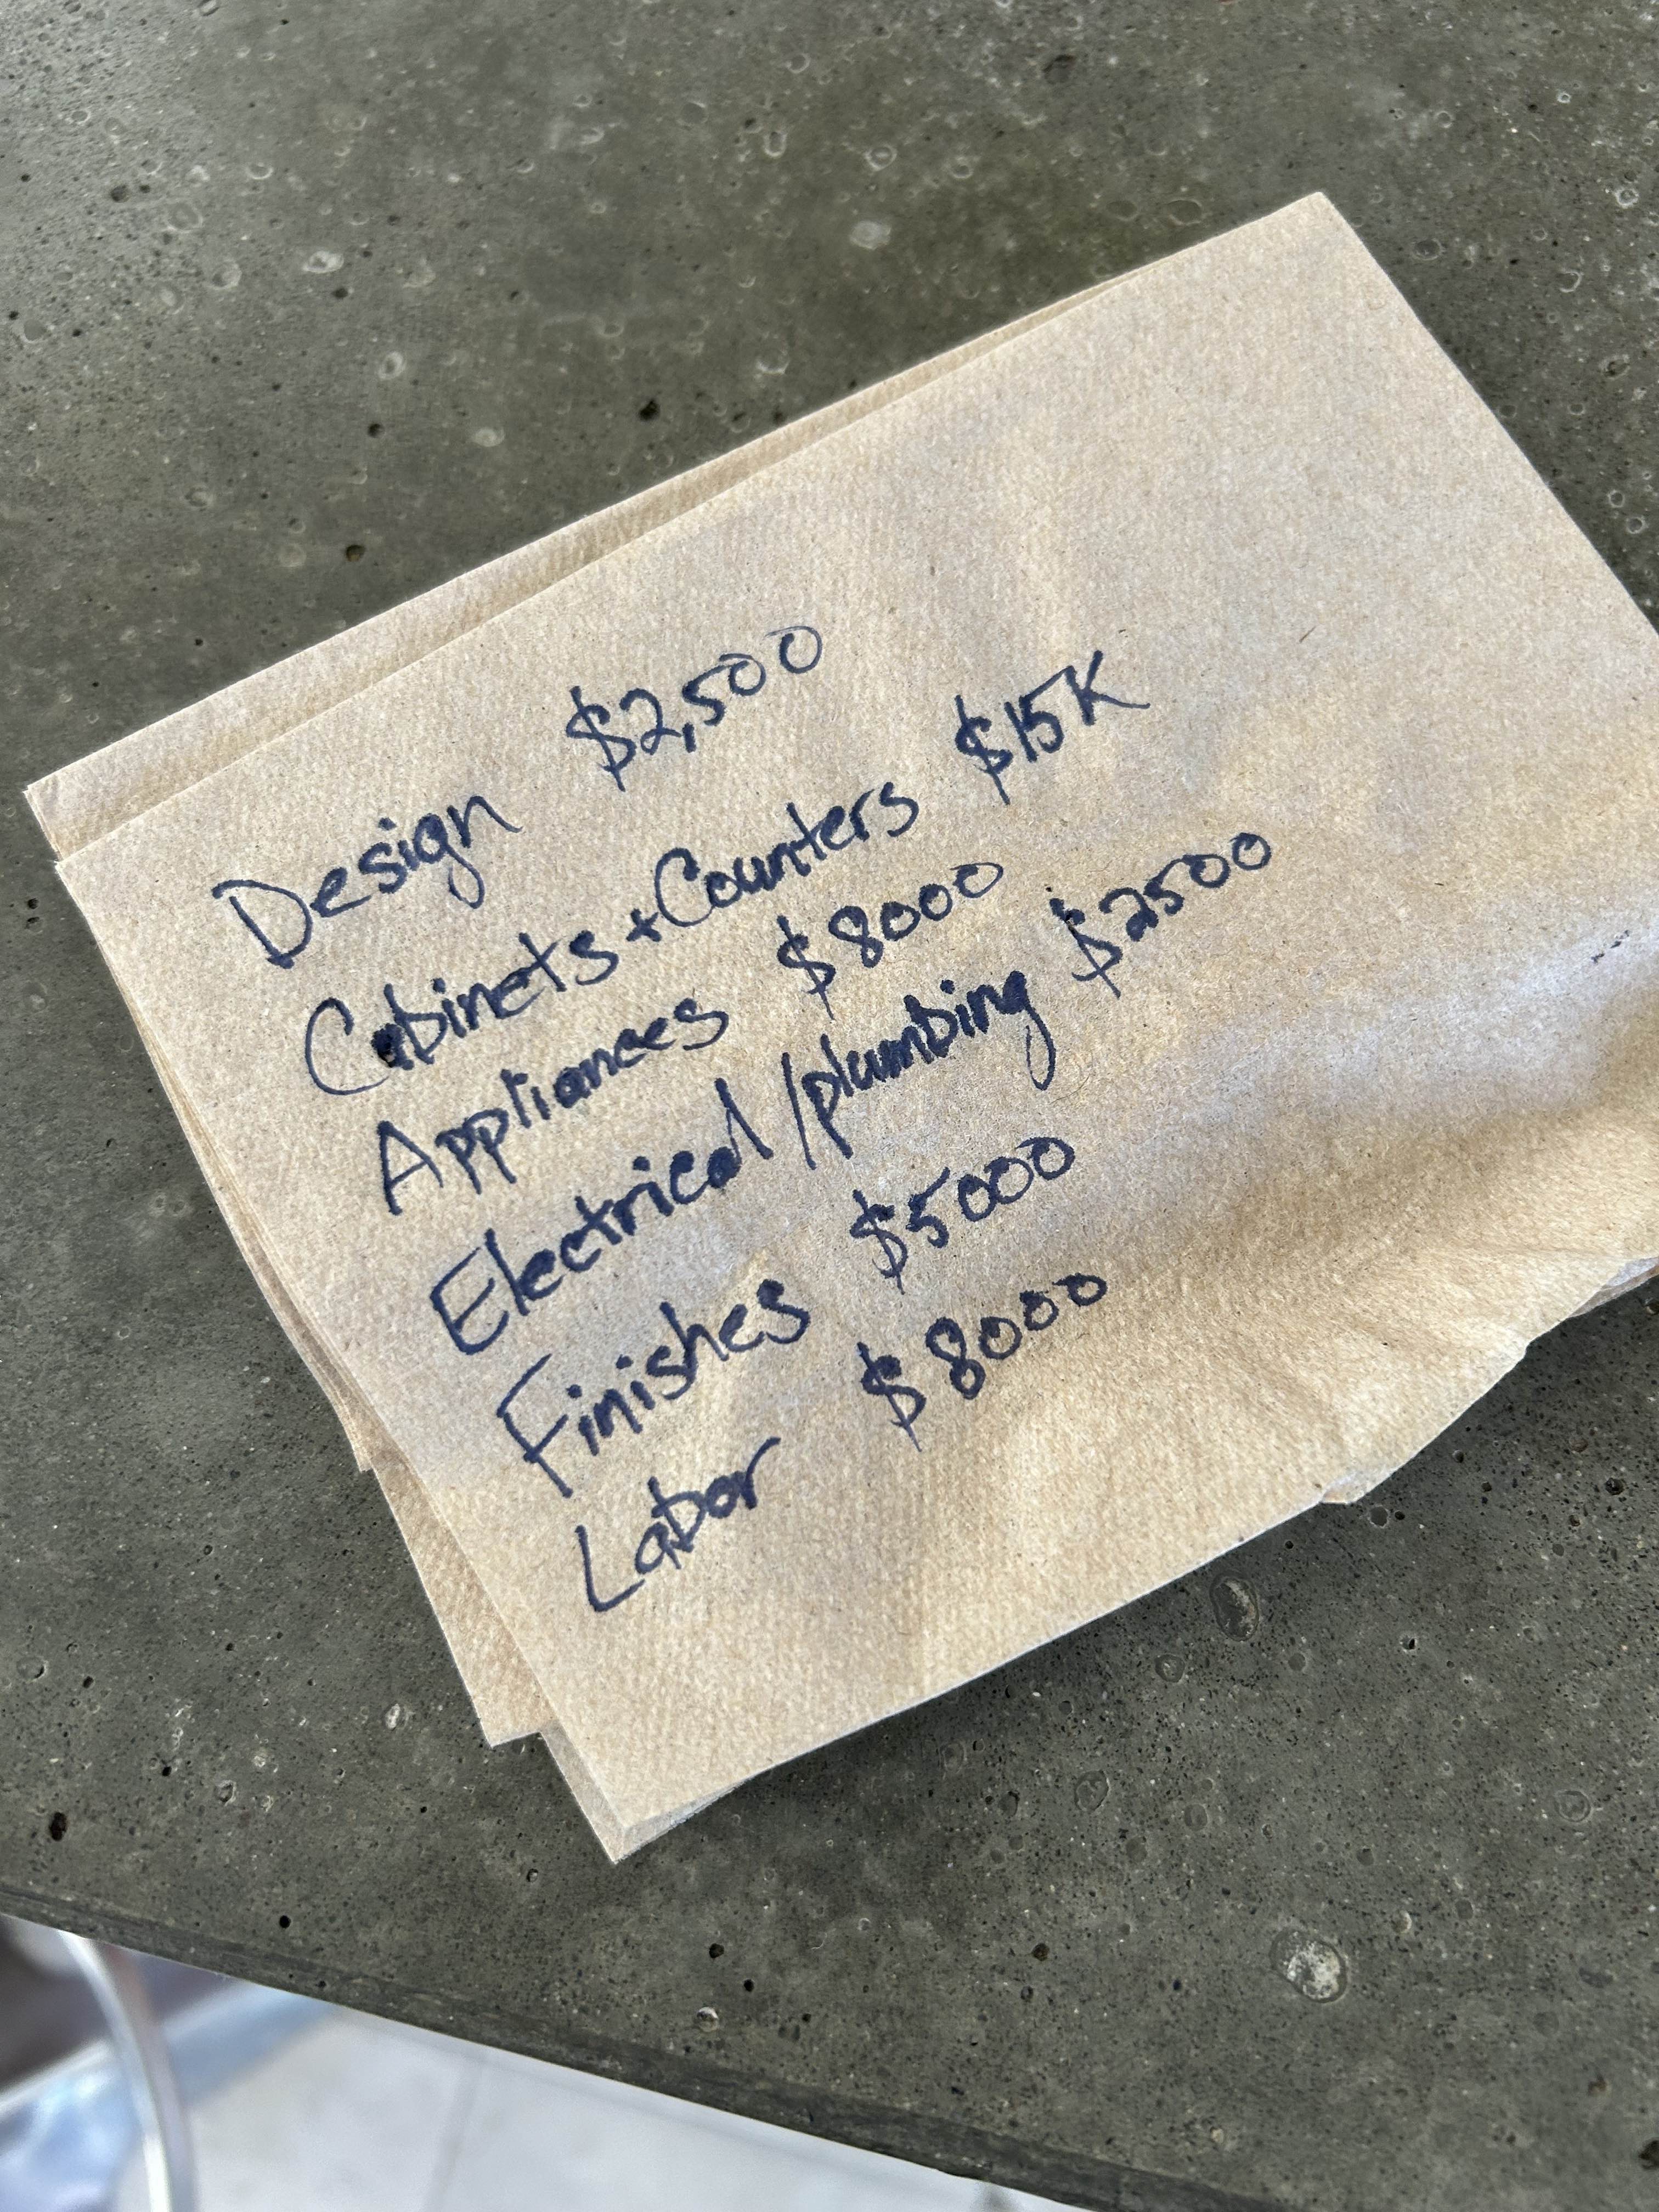 Design $2,500
Cabinets + Counters $15K
Appliances $8000
Electrical/plumbing $2500
Finishes $5000
Labor $8000